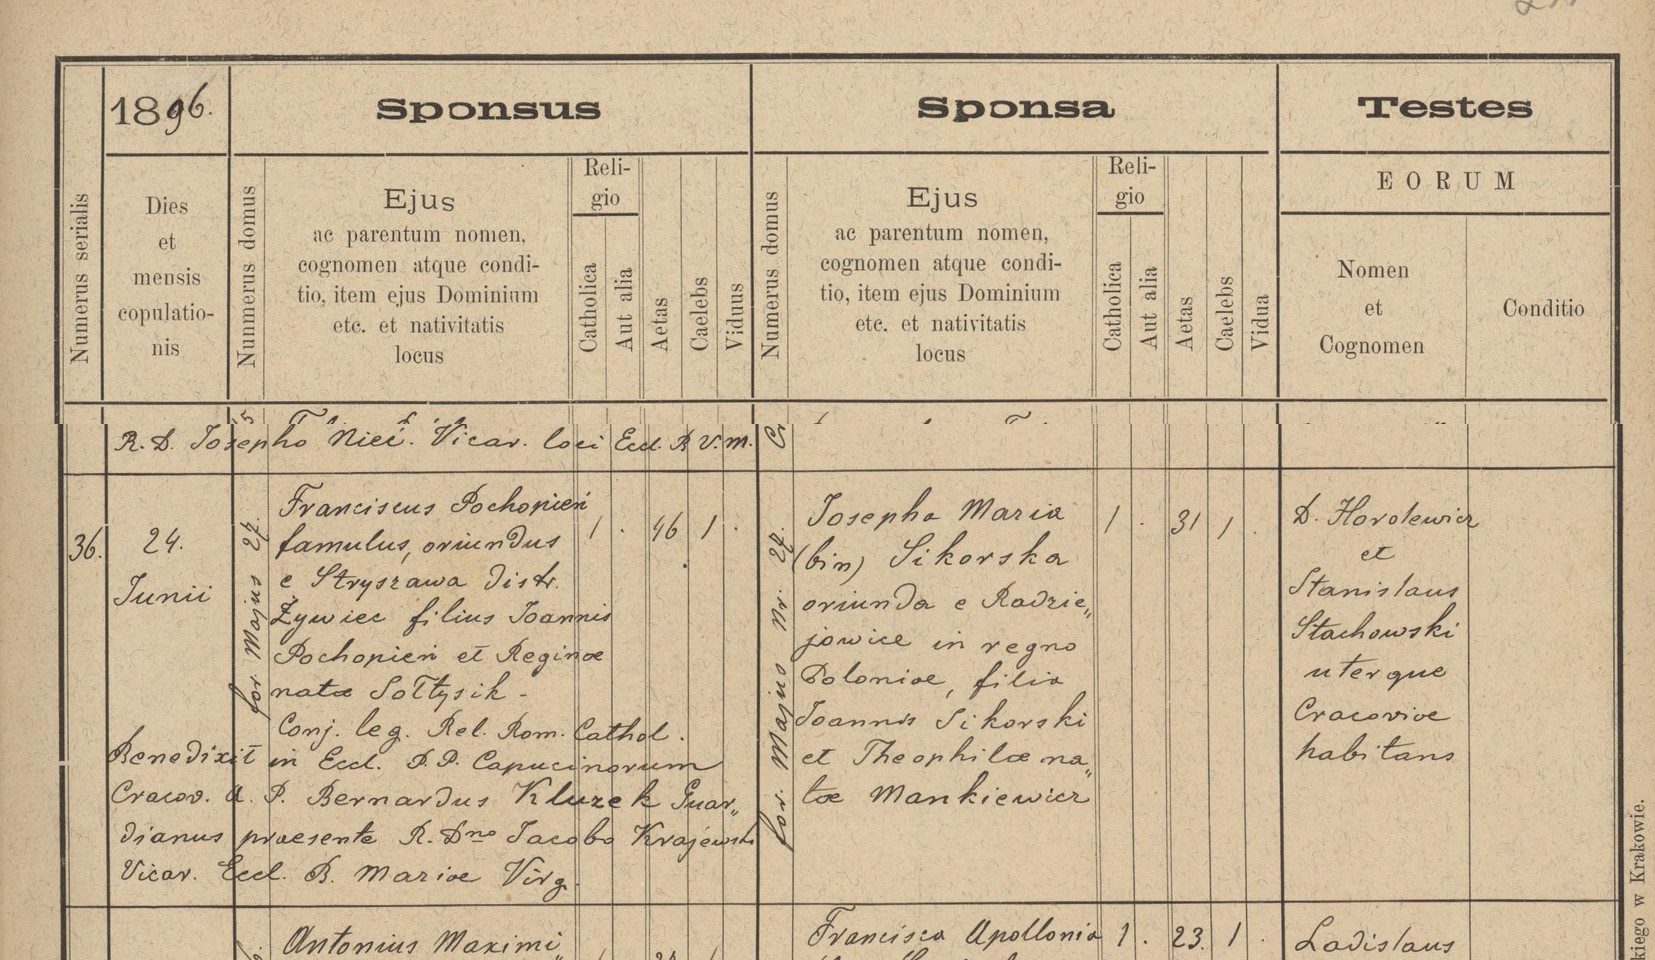 1896.
Sponsus
Sponsa
Testes
Numerus serialis
Dies
et
mensis
copulatio-
nis
Nunmerus domus
Ejus
ac parentum nomen,
cognomen atque condi-
tio, item ejus Dominium
etc. et nativitatis
locus
Reli-
gio
Catholica
Aut alia
Aetas
Caelebs
Viduus
Numerus domus
Ejus
ac parentum nomen,
cognomen atque condi-
tio, item ejus Dominium
etc. et nativitatis
locus
Reli-
gio
Catholica
Aut alia
Aetas
Caelebs
Vidua
EORUM
Nomen
et
Cognomen
Conditio
R. D. Josepho Nieć. Vicar. loci Eccl. B. V. M.
36.
24.
Junii
for Majus 27.
Franciscus Pochopień
famulus, oriundus
e Stryszawa distr.
Żywiec filius Joannis
Pochopień et Reginae
natae Sołtysik -
Conj. leg. Rel. Rom. Cathol.
1 . 46 1 .
Benedixit in Eccl. P. P. Capucinorum
Cracov. A. P. Bernardus Kluzek Guar„
dianus praesente R. Dno Jacobo Krajewski
Vicar. Eccl. B. Mariae Virg.
for. Majus Nr. 27.
Josepha Maria
(bin) Sikorska
oriunda e Radzie„
jowice in regno
Poloniae, filia
Joannis Sikorski
et Theophilae na„
tae Mankiewicz
1 . 31 1
D. Horolewicz
et
Stanislaus
Stachowski
uterque
Cracoviae
habitans
Antonius Maximi
Francisca Apollonia
1 . 23. 1 .
Ladislaus
kiego w Krakowie.